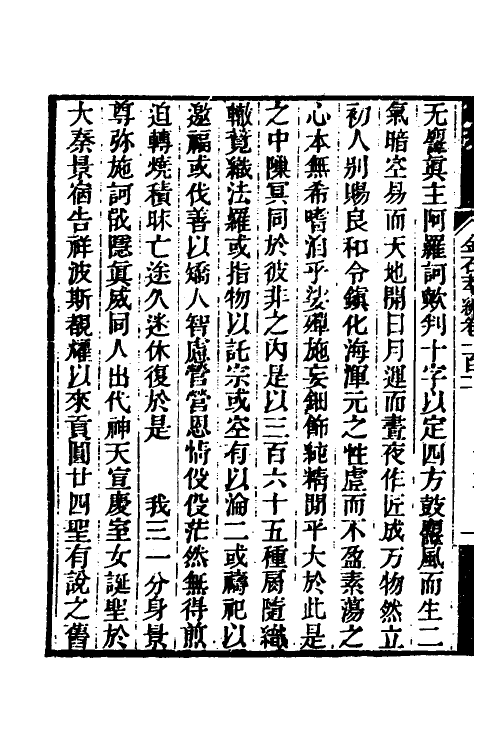 金石萃編卷一百二
无靈眞主阿羅訶歟判十字以定四方鼓風而生二
氣暗空易而天地開日月運而晝夜作匠成万物然立
初人别賜良和令鎮化海渾元之性虛而不盈素蕩之
心本無希嗜洎乎娑殫施妄鈿飾純精閒平大於此是
之中隟冥同於彼非之內是以三百六十五種肩隨結
轍競織法羅或指物以託宗或空有以淪二或禱祀以
邀福或伐善以矯人智慮營營恩情役役茫然無得煎
迫轉燒積昧亡途久迷休復於是　我三一分身景
尊弥施訶戢隱眞威同人出代神天宣慶室女誕聖於
大秦景宿告祥波斯覩耀以來貢圓廿四聖有說之舊